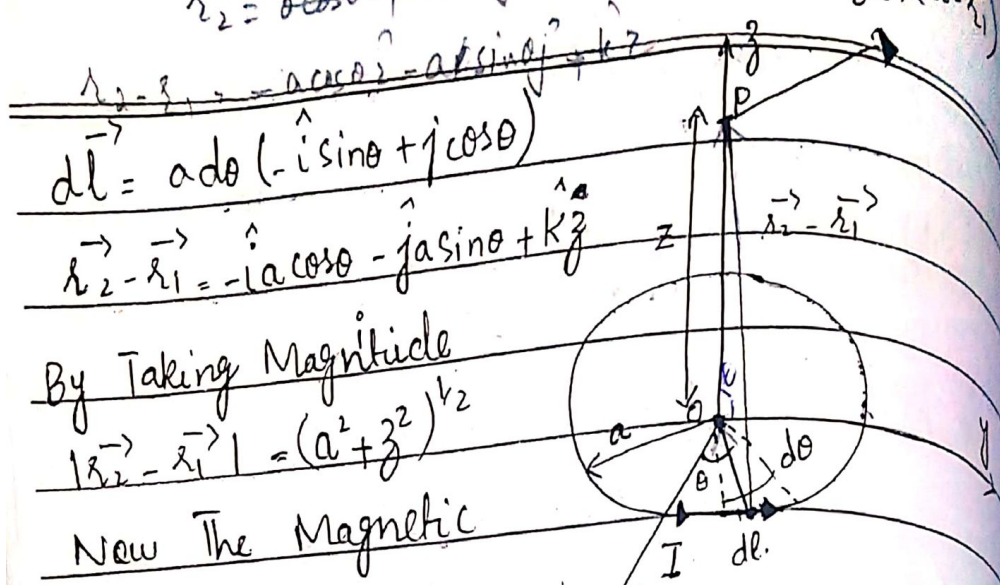 r₂ =
r₂ - r₁ = - a cosθ î - a sinθ ĵ + k̂ z
dl⃗ = a dθ (- î sinθ + j cosθ)
r₂⃗ - r₁⃗ = - î a cosθ - ĵ a sinθ + k̂ z
By Taking Magnitude
|r₂⃗ - r₁⃗| = (a² + z²)^1/2
Now The Magnetic
z
P
z
r₂⃗ - r₁⃗
O
a
θ
dθ
y
I
dl.